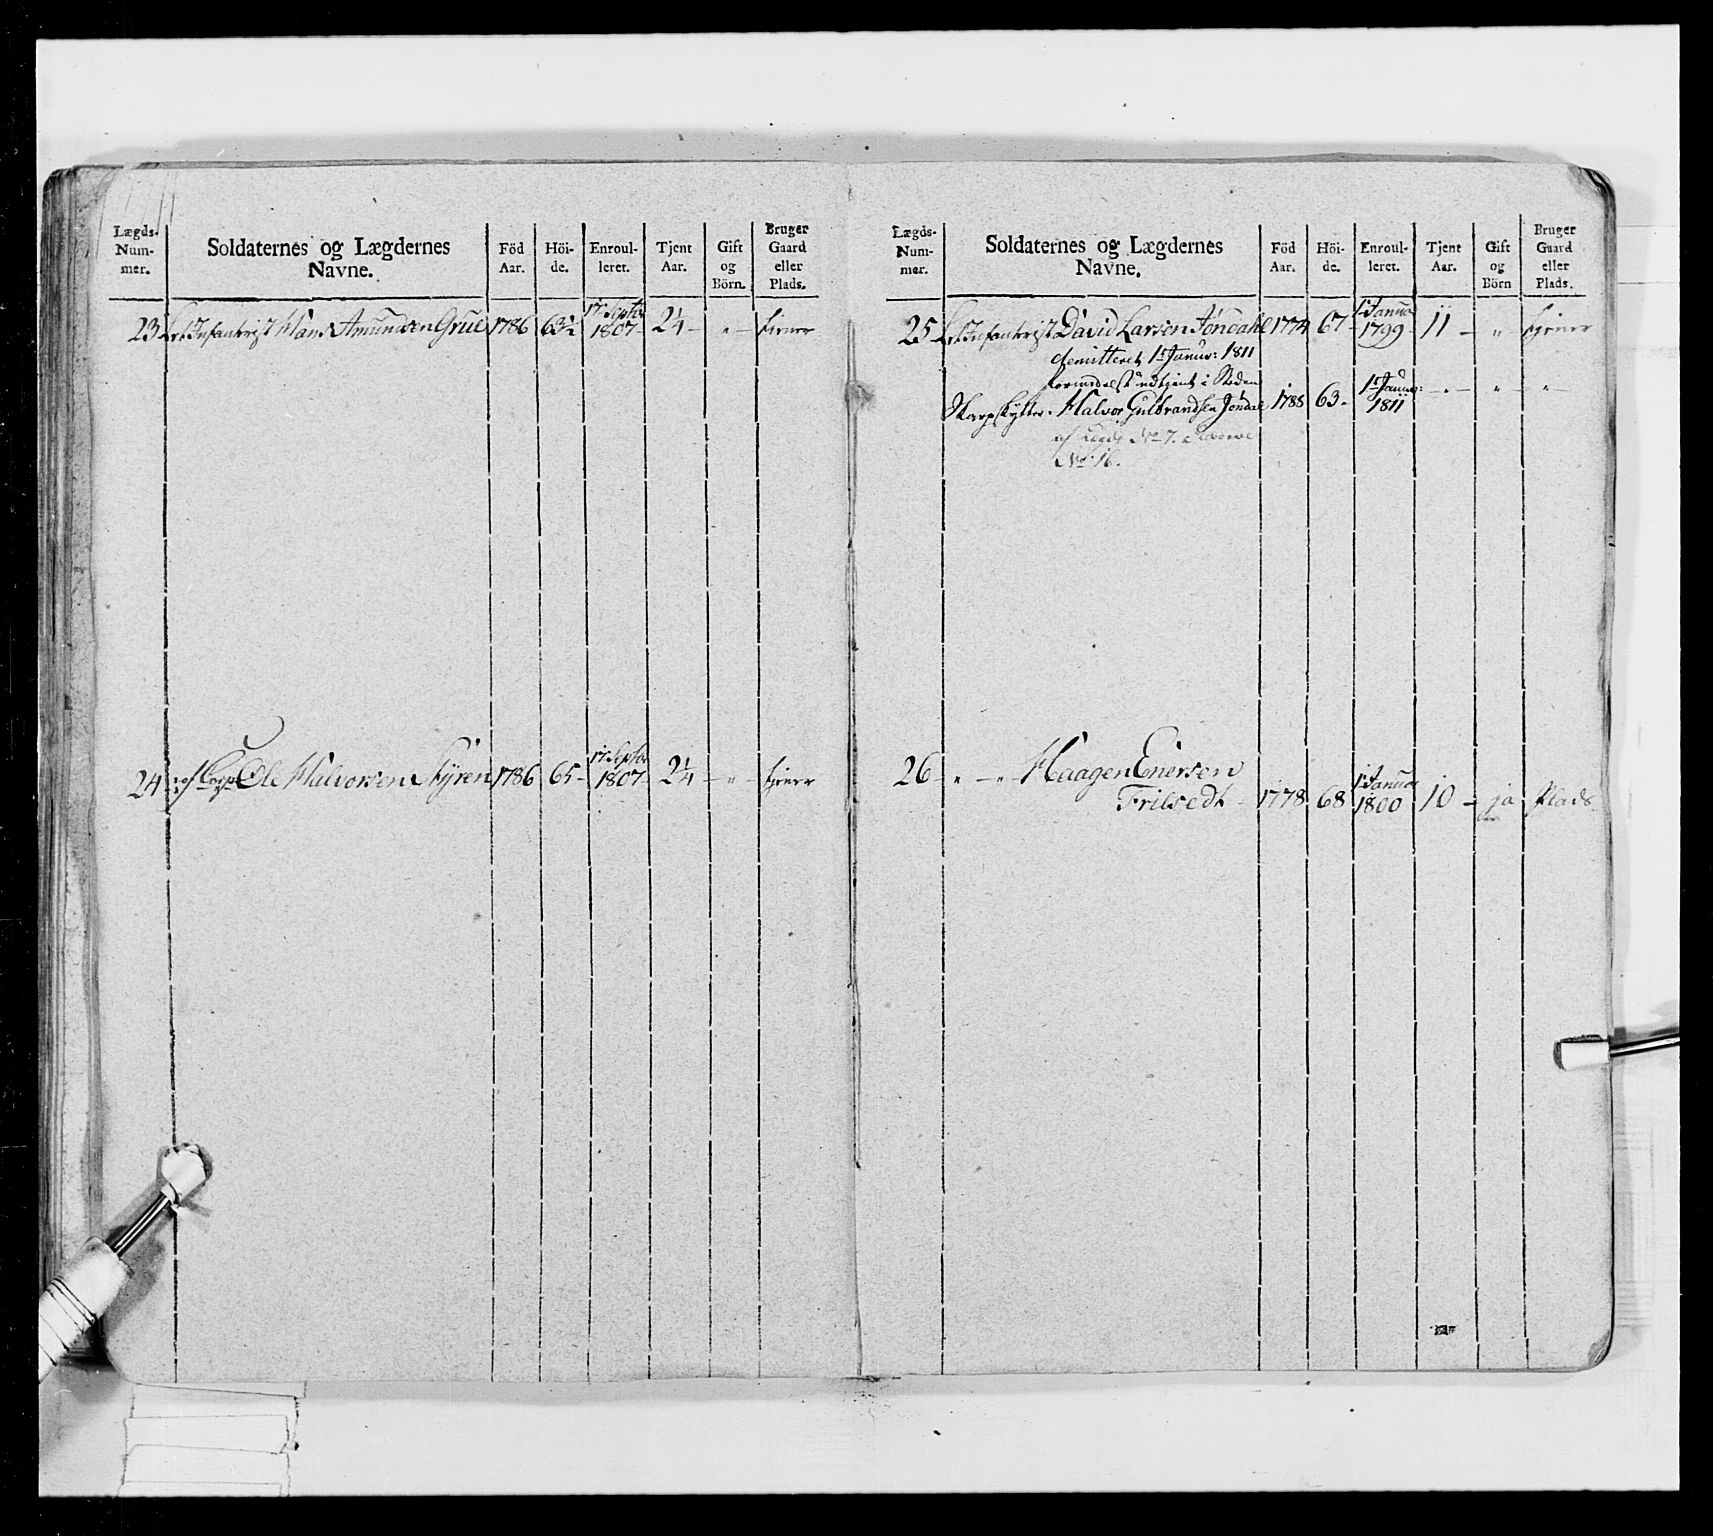 Lægds-Num-mer. | Soldaternes og Lægdernes Navne. | Föd Aar. | Höi-de. | Enroul-leret. | Tjent Aar. | Gift og Börn. | Bruger Gaard eller Plads.
23 Infanterist Hans Amundsen Grue 1786 63½ 1807 2¼ - " - tjener
24 Ole Halvorsen Styren 1786 65 - 1807 - 2¼ - " - tjener
Lægds-Num-mer. | Soldaternes og Lægdernes Navne. | Föd Aar. | Höi-de. | Enroul-leret. | Tjent Aar. | Gift og Börn | Bruger Gaard eller Plads.
25 Infanterist David Larsen Jøndahl 1774 67 - 1 Janua 1799 - 11 - " - tjener
demitteret 1 Janua: 1811
udtjent i Steden
Skarpskytter: Halvor Gulbrandsen Jøndal 1788 63 - 1 Janua: 1811 - " - " - " -
af Lægd No 7.
No 16.
26 - " - " - Haagen Enersen
Frilsedt - 1778 68 1 Janua 1800 10 - ja Plads